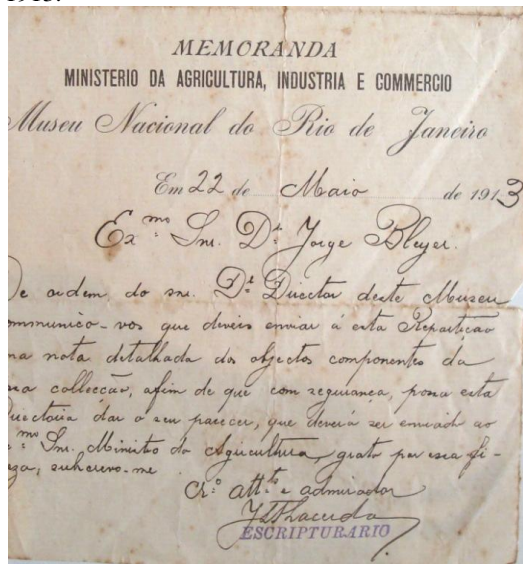 1913.
MEMORANDA
MINISTERIO DA AGRICULTURA, INDUSTRIA E COMMERCIO
Museu Nacional do Rio de Janeiro
Em 22 de Maio de 1913
Exmo Snr. Dr. Jorge Bleyer.
De ordem do snr. Dr. Director deste Museu
ommunico-vos que deveis enviar á esta Repartição
ma nota detalhada dos objectos componentes da
ssa collecção, afim de que com segurança, possa esta
Directoria dar o seu parecer, que deverá ser enviado ao
mo Snr. Ministro da Agricultura, grato por essa fi-
eza, subscrevo-me
Cro. attto e admirador
ESCRIPTURARIO